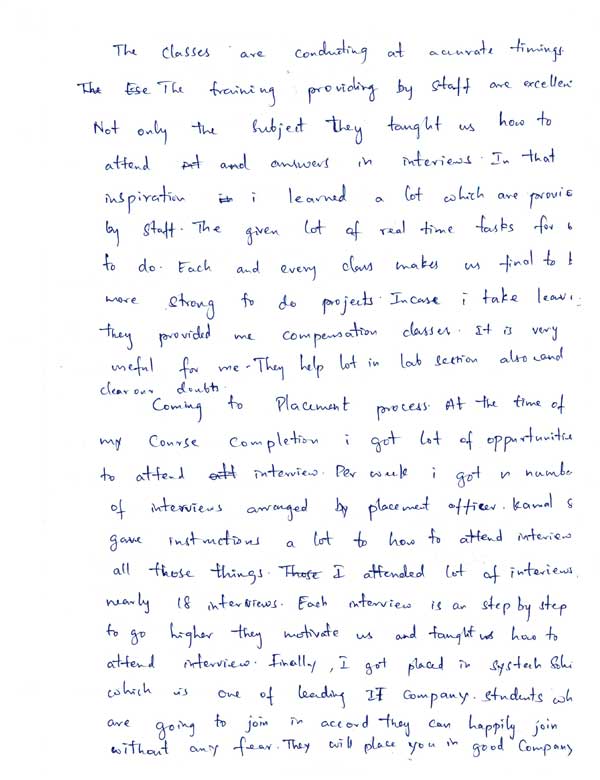 The classes are conducting at accurate timings.
The Ese The training providing by staff are excellen
Not only the subject they taught us how to
attend At and answers in interviews. In that
inspiration is i learned a lot which are provid
by staff. The given lot of real time tasks for
to do. Each and every class makes us final to b
more strong to do projects. Incase i take leave
they provided me compensation classes. It is very
useful for me. They help lot in lab section also and
clear our doubts.
Coming to Placement process. At the time of
my Course completion i got lot of oppurtunitie
to attend att interview. Per week i got n numbe
of interviews arranged by placement officer. kamal s
gave instructions a lot to how to attend interview
all those things. Those I attended lot of interviews
nearly 18 interviews. Each interview is an step by step
to go higher they motivate us and taught us how to
attend interview. Finally, I got placed in Systech Solu
which is one of leading IT company. Students wh
are going to join in accord they can happily join
without any fear. They will place you in good Company